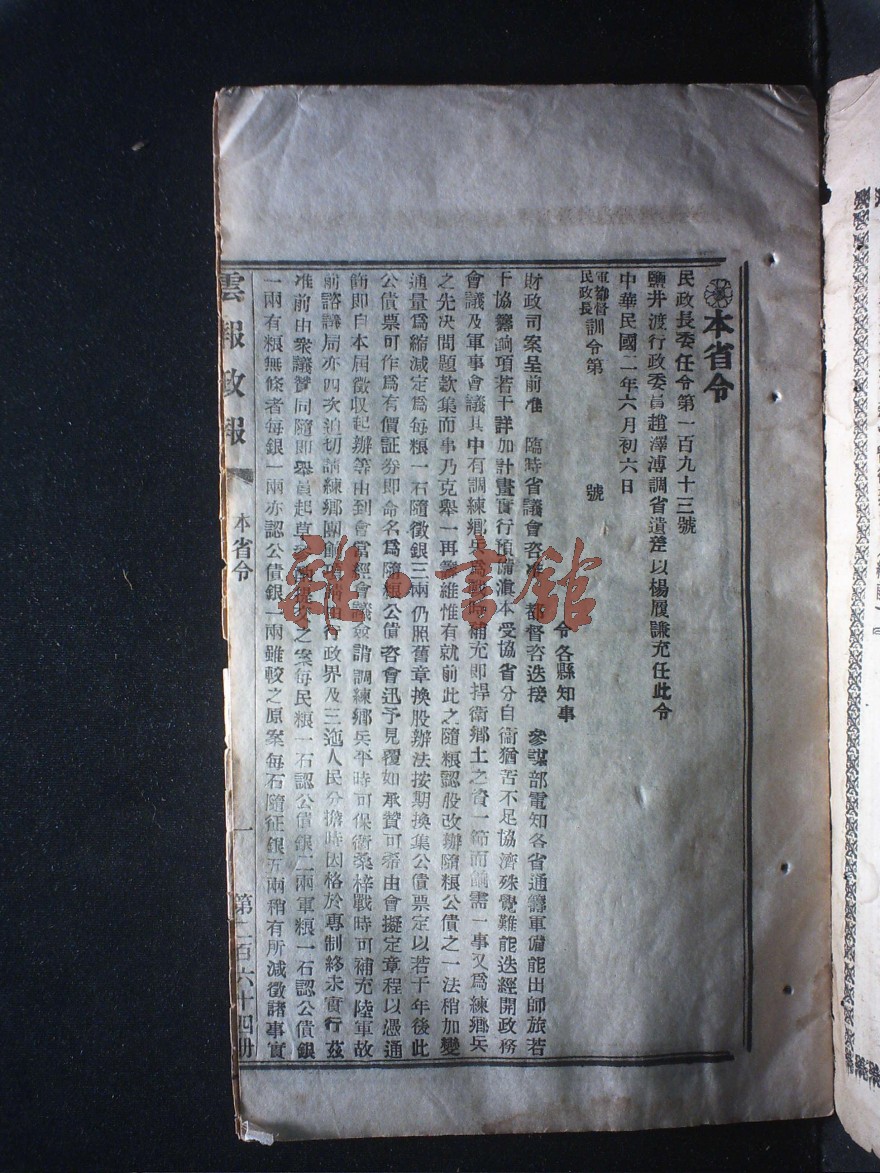 本省令
民政長委任令第一百九十三號
鹽井渡行政委員趙澤溥調省遺差以楊履謙充任此令
中華民國二年六月初六日
軍都督
民政長
訓令第　號
令各縣知事
財政司案呈前准　臨時省議會咨准　都督咨迭接　參謀部電知各省通籌軍備能出師旅若
干協籌餉項若干詳加計畫實行預備滇本受協省分自衞猶苦不足協濟殊覺難能迭經開政務
會議及軍事會議其中有調練鄉兵爲戰時補充即捍衛鄉土之資一節而餉需一事又爲練鄉兵
之先决問題欵集而事乃克舉一再籌維惟有就前此之隨粮認股改辦隨粮公債之一法稍加變
通量爲縮減定爲每粮一石隨徵銀三兩仍照舊章換股辦法按期換集公債票定以若干年後此
公債票可作爲有價証劵即命名爲隨粮公債咨會迅予見覆如承贊可希由會擬定章程以憑通
飭即自本屆徵収起辦等由到會當經會議僉謂調練鄉兵平時可保衞桑梓戰時可補充陸軍故
前諮議局亦四次迫切請練鄉團餉項請由行政界及三迤人民分擔時因格於專制終未實行茲
准前由衆議贊同隨即舉員起草之案每民粮一石認公債銀二兩軍粮一石認公債銀
一兩有粮無條者每銀一兩亦認公債銀一兩雖較之原案每石隨征銀五兩稍有所減徵諸事實
雲報政報
本省令
一
第二百六十四册
雜·書館